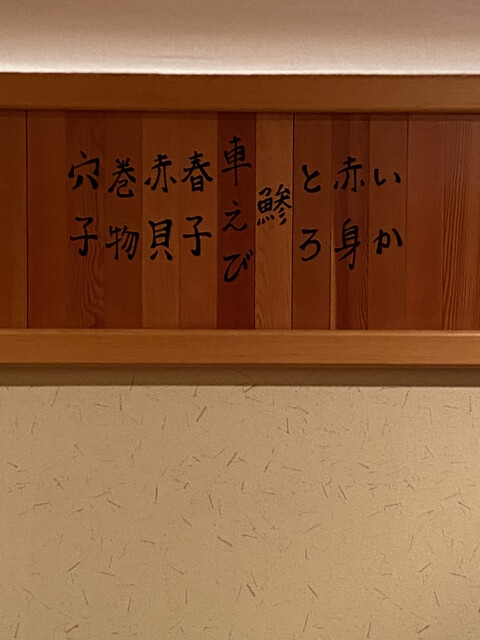 いか
赤身
とろ
鯵
車えび
春子
赤貝
巻物
穴子